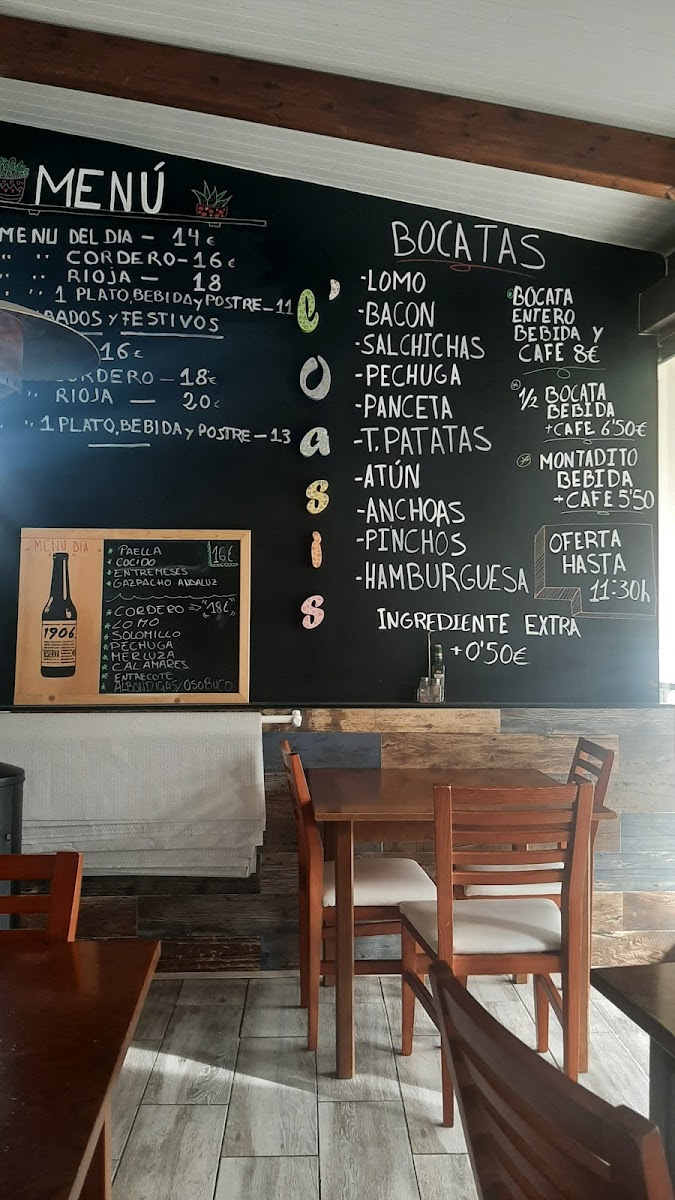 MENÚ
MENU DEL DIA - 14 €
" " CORDERO-16 €
" " RIOJA - 18
" " 1 PLATO, BEBIDA y POSTRE-11
BADOS y FESTIVOS
16 €
CORDERO - 18 €
" RIOJA - 20 €
" 1 PLATO, BEBIDA y POSTRE-13
MENU DIA
1906
RESERVA
* PAELLA
16€
* COCIDO
* ENTREMESES
* GAZPACHO ANDALUZ
* CORDERO => "18€"
* LOMO
* SOLOMILLO
* PECHUGA
* MERLUZA
* CALAMARES
* ENTRECOTE
* ALBONDIGAS/OSOBUCO
L'Oasis
BOCATAS
-LOMO
-BACON
-SALCHICHAS
-PECHUGA
-PANCETA
-T. PATATAS
-ATÚN
-ANCHOAS
-PINCHOS
-HAMBURGUESA
INGREDIENTE EXTRA
+0'50€
* BOCATA
ENTERO
BEBIDA Y
CAFE 8€
* 1/2 BOCATA
BEBIDA
+CAFE 6'50€
* MONTADITO
BEBIDA
+CAFE 5'50
OFERTA
HASTA
11:30h